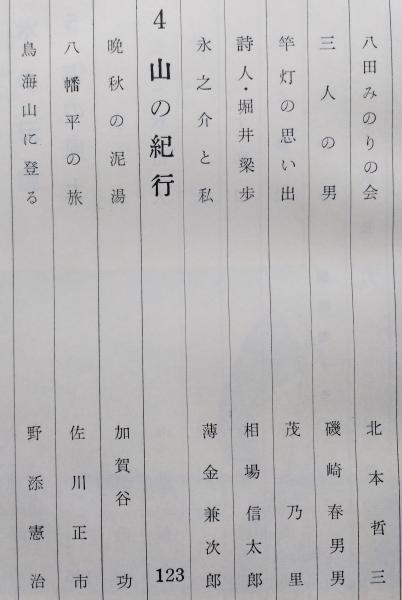 八田みのりの会 北本哲三
三人の男 磯崎春男男
竿灯の思い出 茂乃里
詩人・堀井梁歩 相場信太郎
永之介と私 薄金兼次郎
4 山の紀行 123
晩秋の泥湯 加賀谷功
八幡平の旅 佐川正市
鳥海山に登る 野添憲治